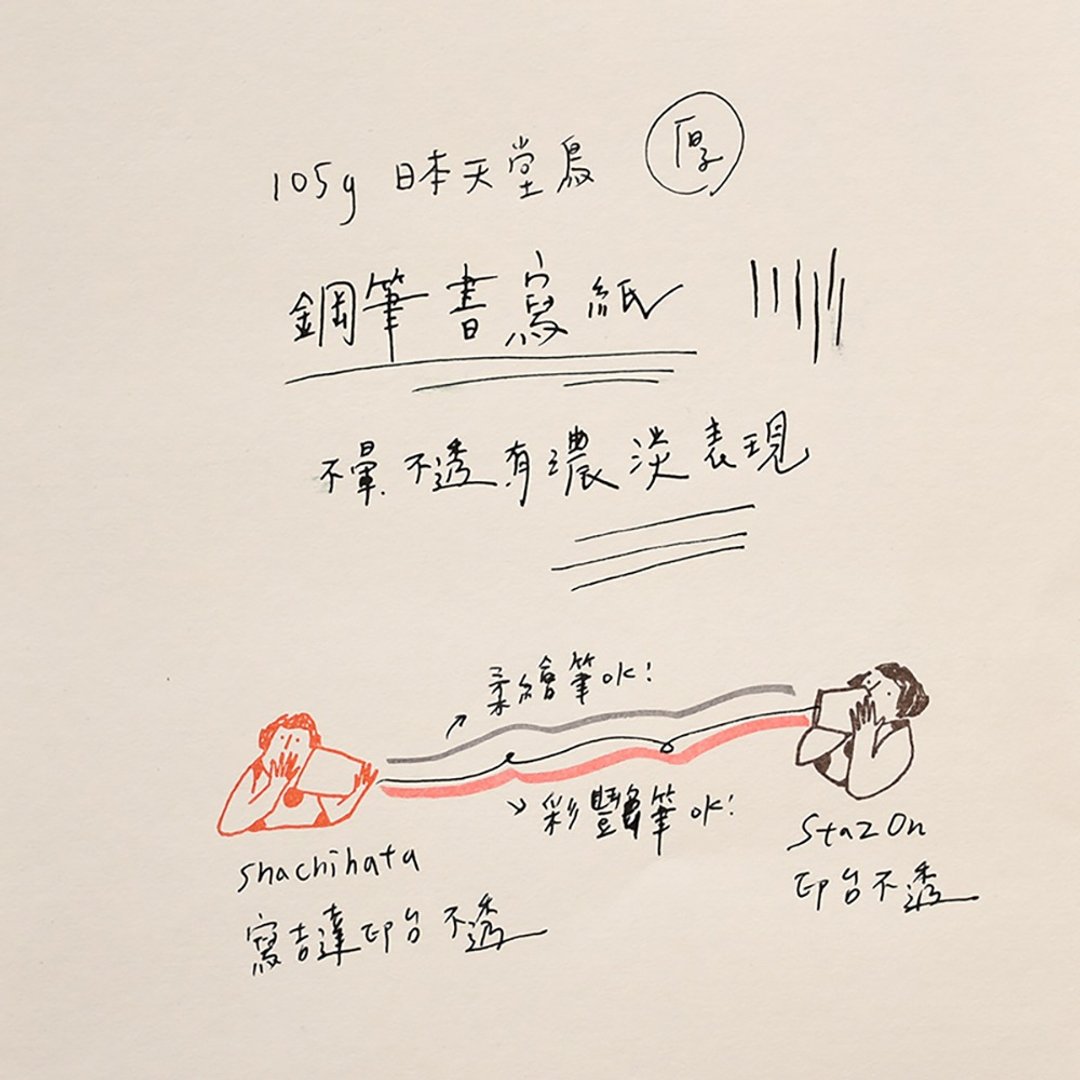 105g 日本天堂鳥 厚
鋼筆書寫紙
不暈 不透 有濃淡表現
柔繪筆 OK!
彩豔筆 OK!
Shachihata
寫吉達印台不透
StazOn
印台不透